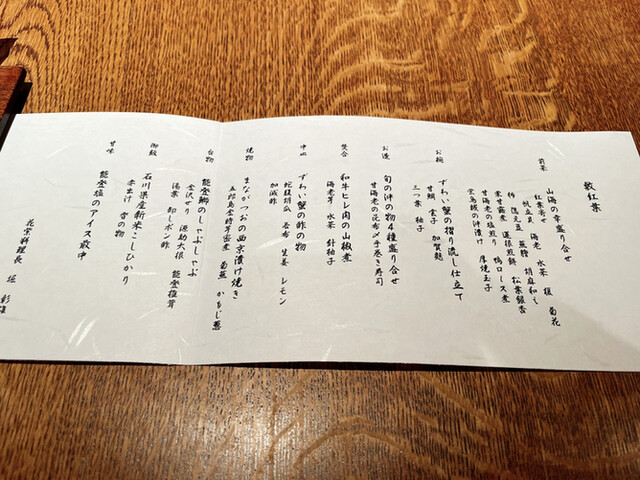 散紅葉
前菜
山海の幸盛り合せ
紅葉寄せ 海老 水菜 菊花
帆立貝 胡麻和え
柿 隠元豆 煎糖 松葉銀杏
栗甘露煮 蓮根煎餅 鴨ロース煮
甘海老の塩煎り 厚焼玉子
宝烏賊の沖漬け
お椀
ずわい蟹の摺り流し仕立て
甘鯛 雲子 加賀麩
三つ葉 柚子
お造
旬の沖の物4種盛り合せ
甘海老の昆布〆手巻き寿司
焚合
和牛ヒレ肉の山椒煮
海老芋 水菜 針柚子
中皿
ずわい蟹の酢の物
蛇腹胡瓜 若布 生姜 レモン
加減酢
焼物
まながつおの西京漬け焼き
五郎島金時芋蜜煮 菊蕪 かもじ葱
台物
能登鰤のしゃぶしゃぶ
金沢せり 源助大根 能登椎茸
湯葉 卸しポン酢
御飯
石川県産新米こしひかり
赤出汁 香の物
甘味
能登塩のアイス最中
花棠料理長 堀 彰雄